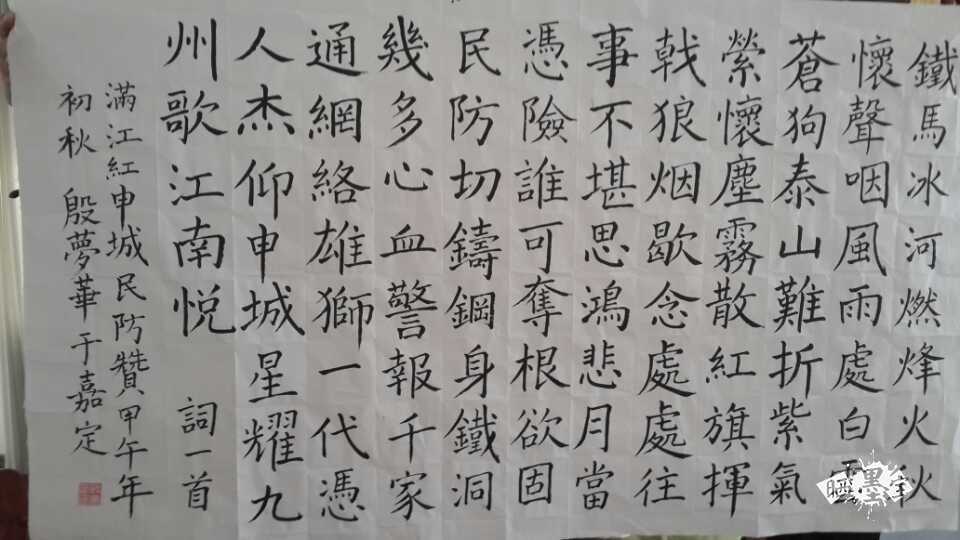 鐵馬冰河燃烽火秋
懷聲咽風雨處白雲
蒼狗泰山難折紫氣
縈懷塵霧散紅旗揮
戟狼烟歇念處處往
事不堪思鴻悲月當
憑險誰可奪根欲固
民防切鑄鋼身鐵洞
幾多心血警報千家
通網絡雄獅一代憑
人杰仰申城星耀九
州歌江南悦 詞一首
滿江紅申城民防贊甲午年
初秋 殷夢華于嘉定